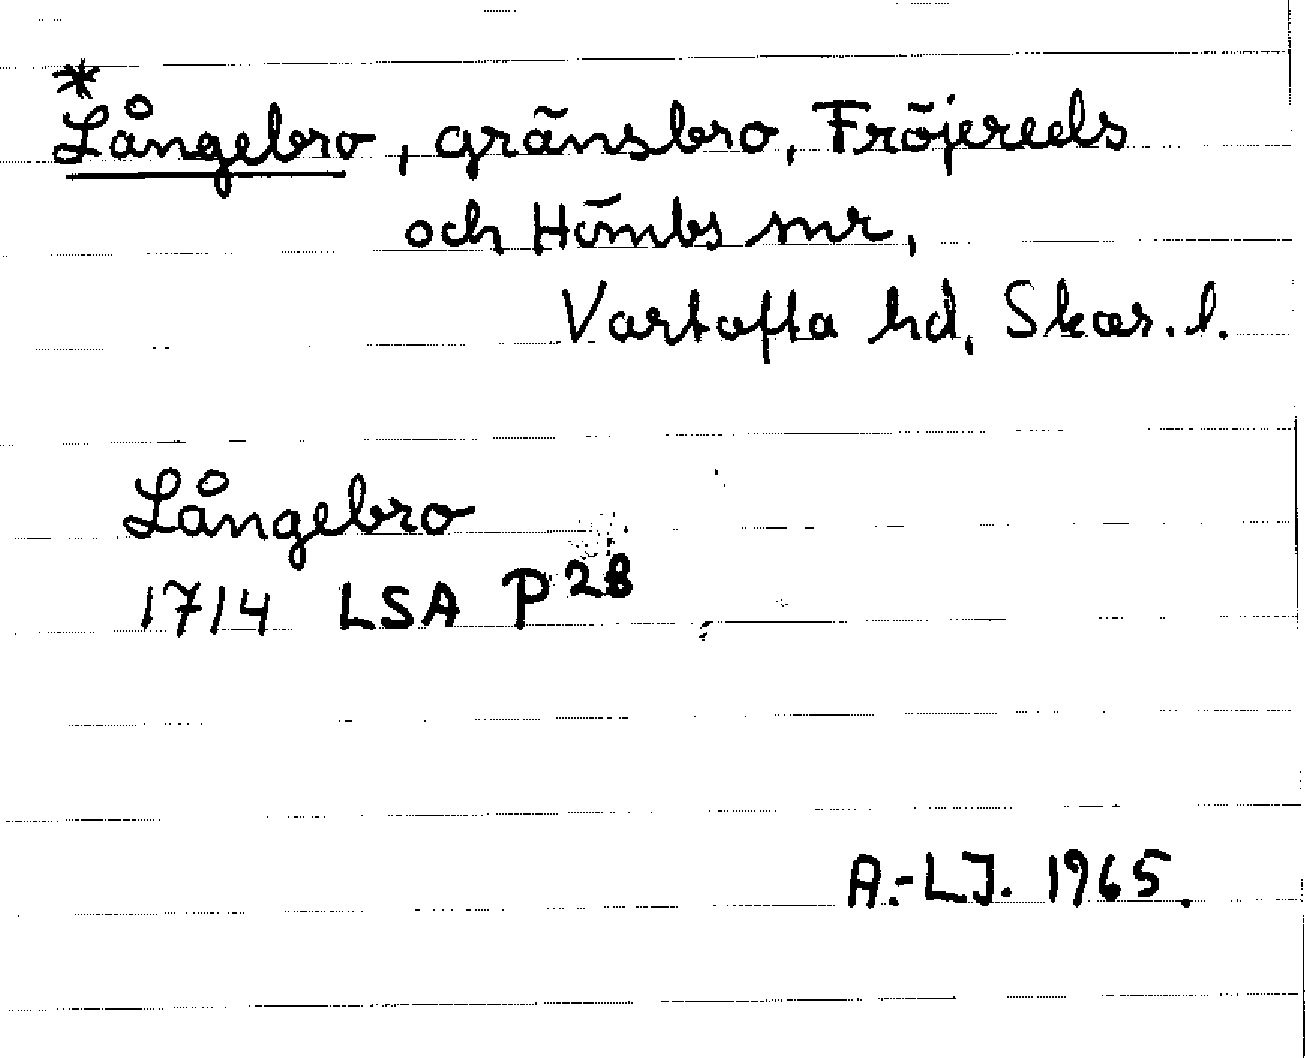 *
Långebro, gränsbro, Fröjereds
och Hömbs snr,
Vartofta hd, Skar. l.
Långebro
1714 LSA P 28
A.-L.J. 1965.